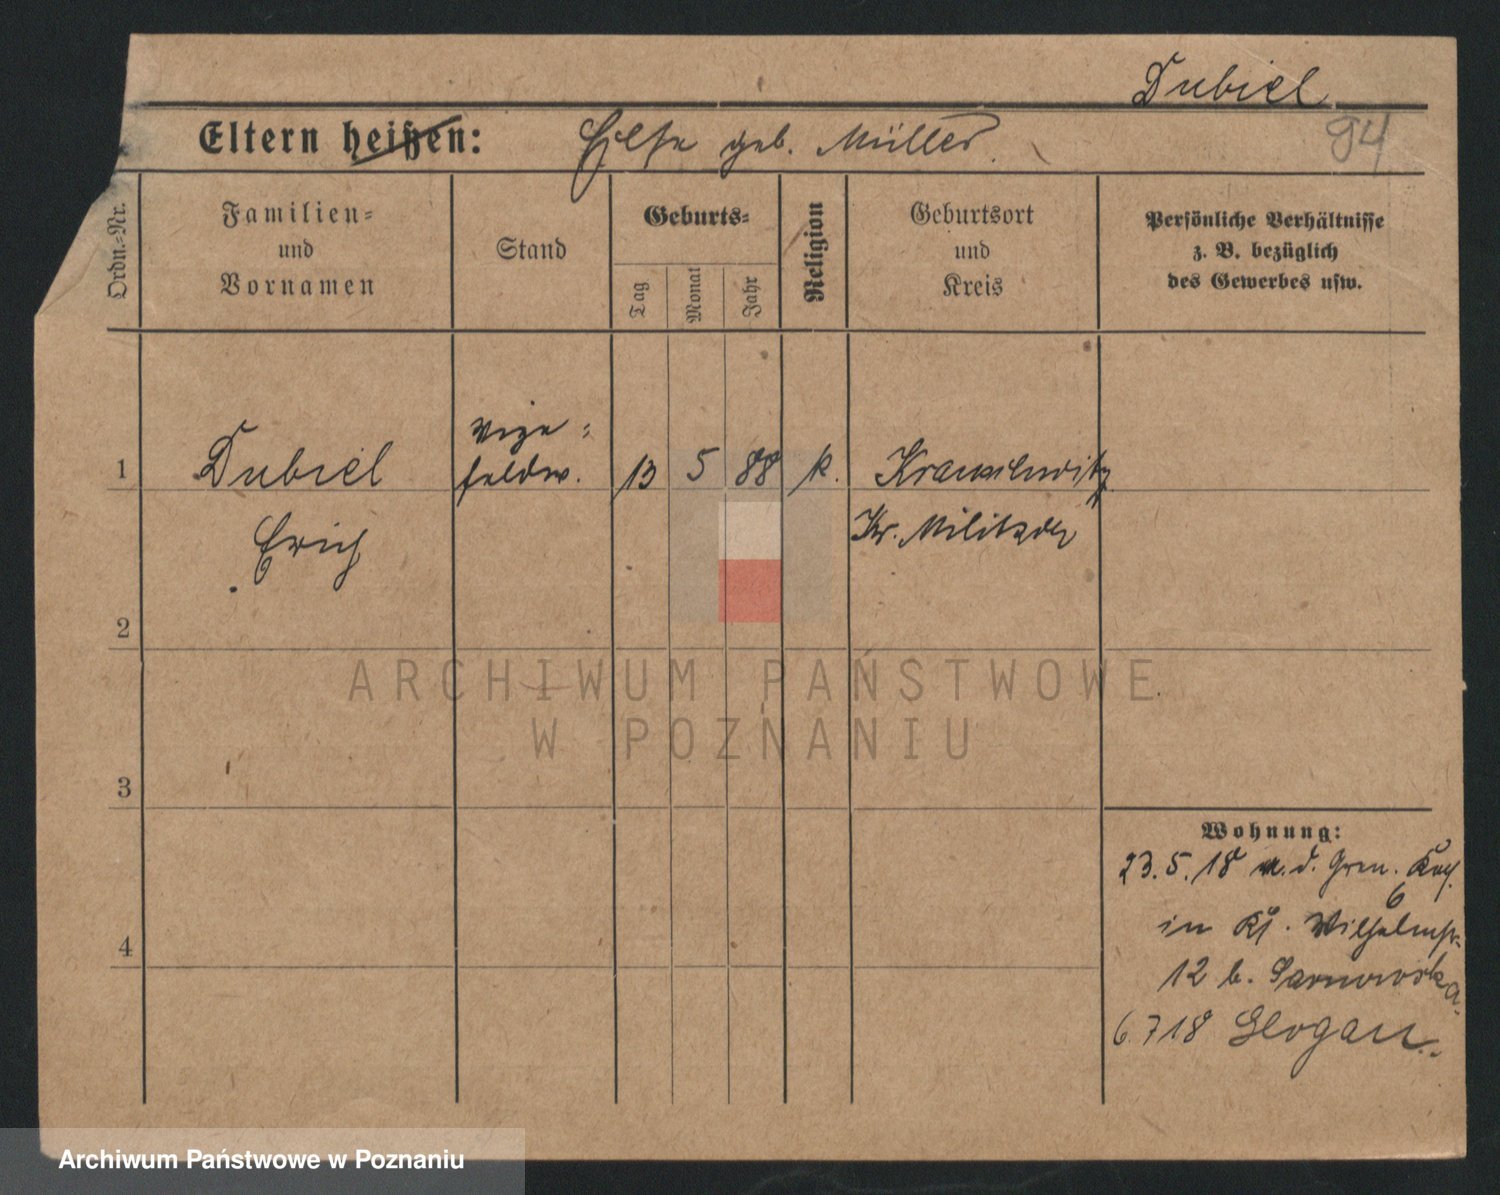 Dubiel
Eltern heißen: geb. Müller.
94
Ordn.-Nr.
Familien-
und
Vornamen
Stand
Geburts-
Tag
Monat
Jahr
Religion
Geburtsort
und
Kreis
Persönliche Verhältnisse
z. B. bezüglich
des Gewerbes usw.
Vize-
1 Dubiel feldw. 13 5 88 k.
Kr. Militsch
Erich
2
ARCHIWUM PAŃSTWOWE
W POZNANIU
3
Wohnung:
23.5.18 Gren.
6
in Wilhelmstr.
4
12 b. Sarnowska.
6.7 18 Glogau.
Archiwum Państwowe w Poznaniu